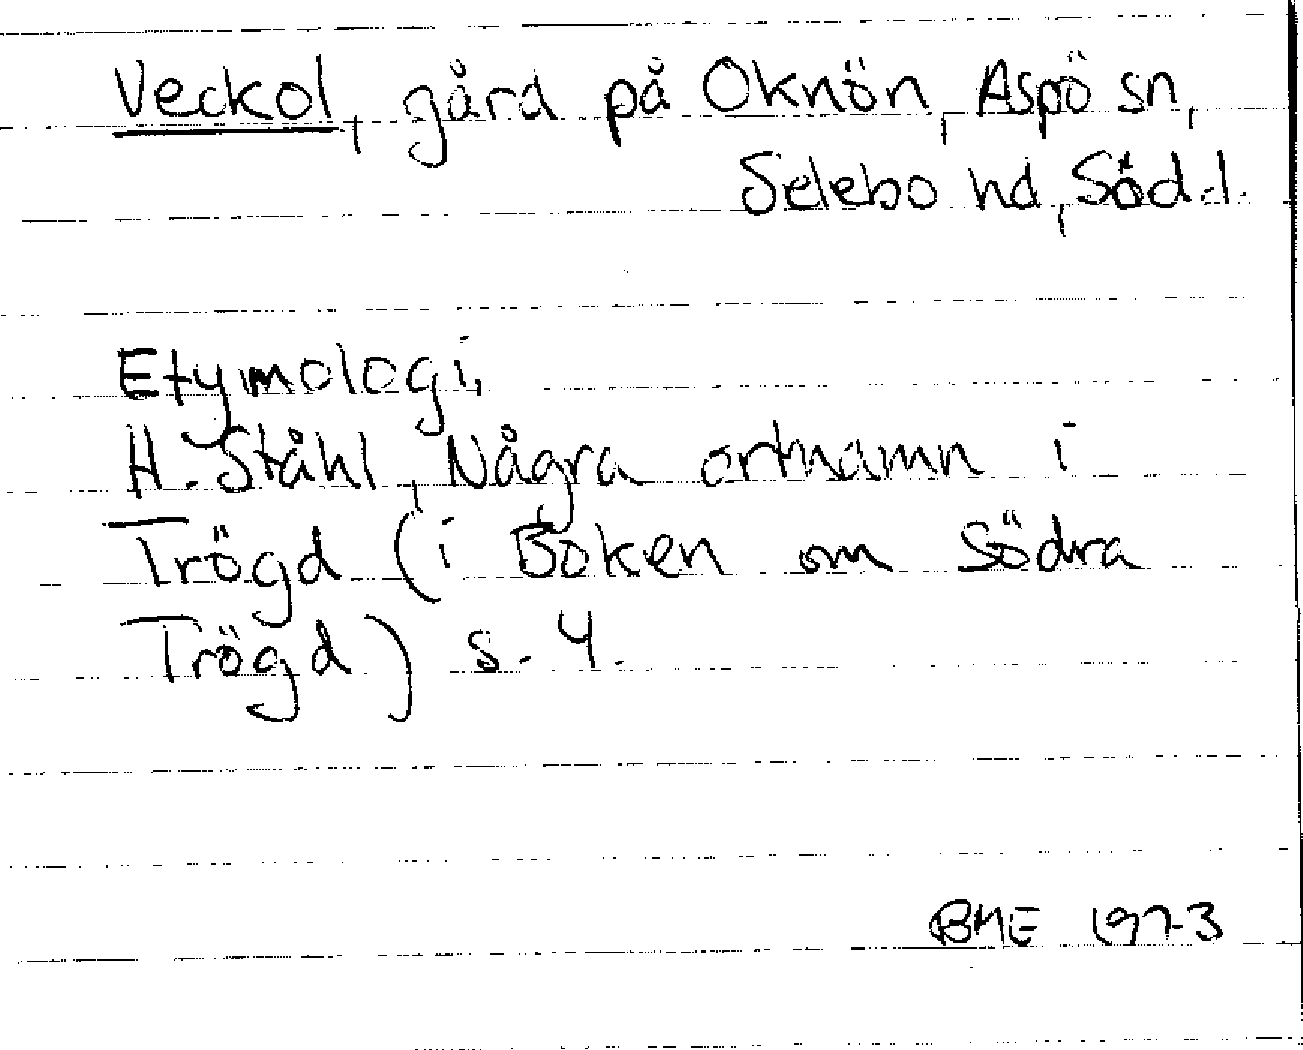 Veckol, gård på Oknön, Aspö sn,
Selebo hd, Söd.l.
Etymologi,
H. Ståhl, Några ortnamn i
Trögd (i Boken om Södra
Trögd) s. 4.
BME 1973